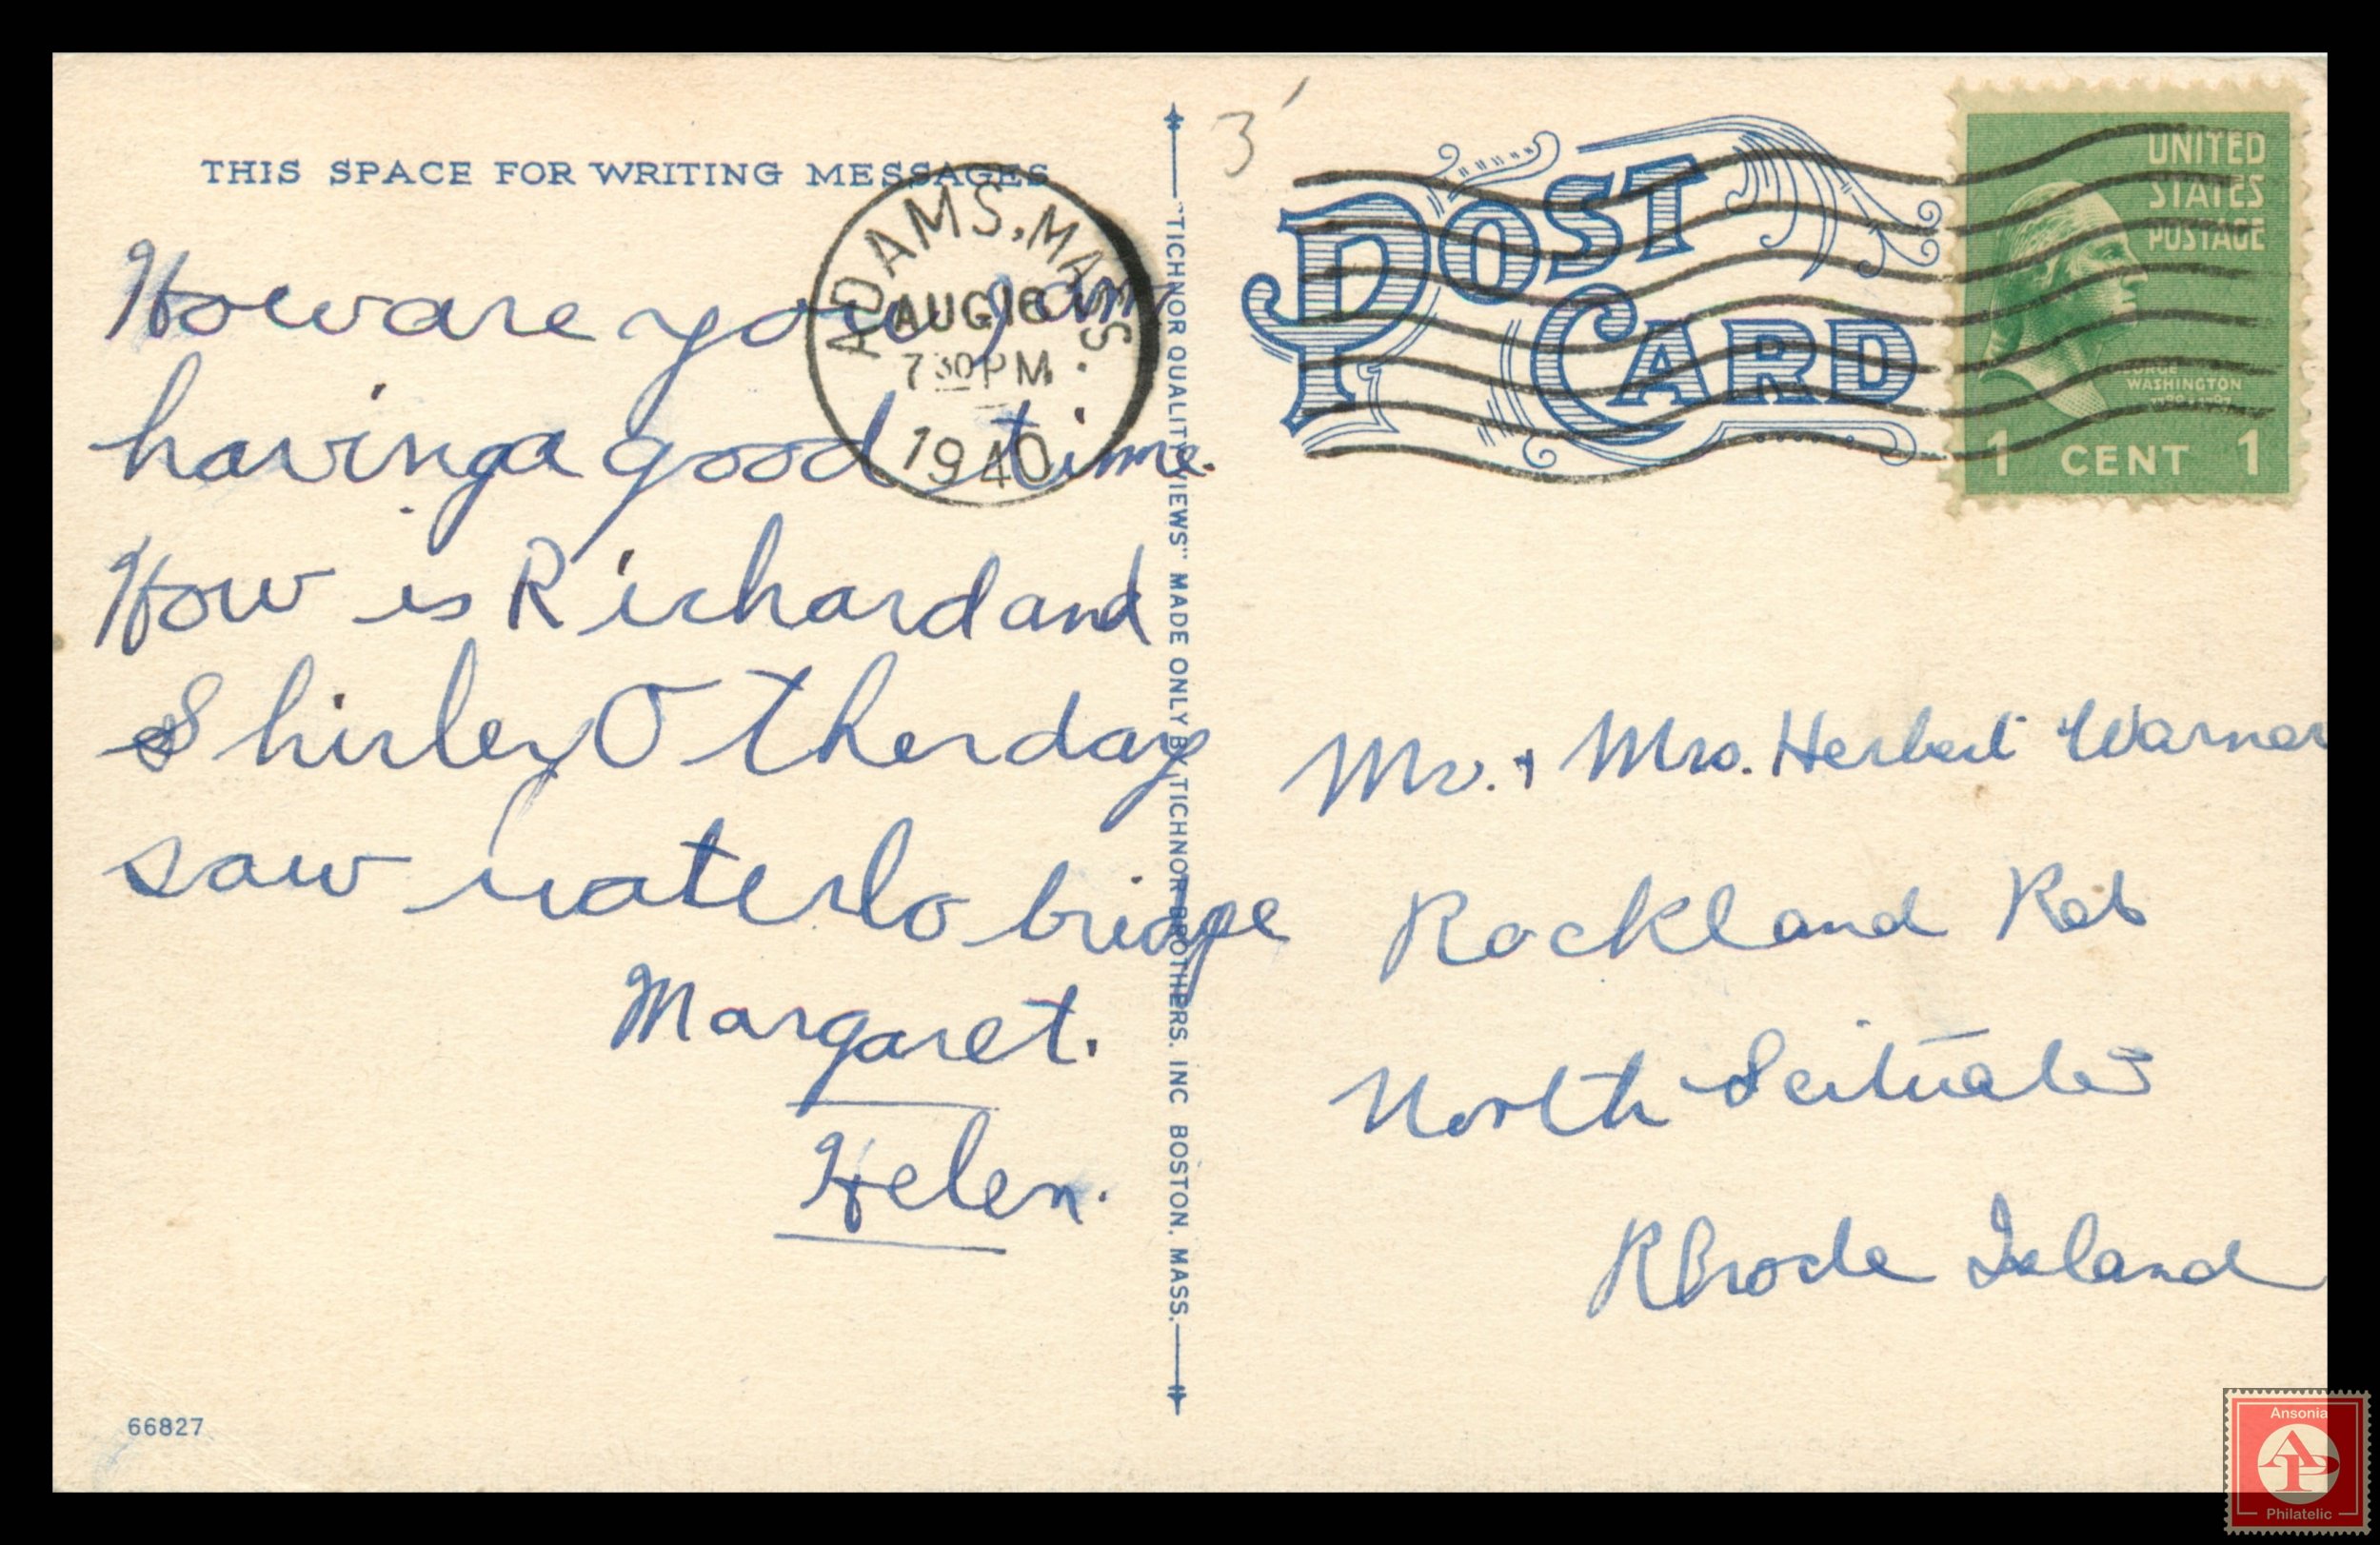 THIS SPACE FOR WRITING MESSAGES
ADAMS, MASS.
AUG 16
7 30 PM
1940
How are you I am
having a good time.
How is Richard and
Shirley O ther day
saw waterlo bridge
Margaret.
Helen.
66827
"TICHNOR QUALITY VIEWS" MADE ONLY BY TICHNOR BROTHERS, INC BOSTON, MASS.
3
POST CARD
UNITED
STATES
POSTAGE
GEORGE
WASHINGTON
1789-1797
1 CENT 1
Mr. + Mrs. Herbert Warner
Rockland
North Scituate
Rhode Island
Ansonia
AP
Philatelic